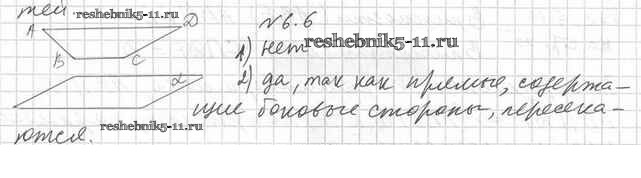 тей.
reshebnik5-11.ru
A D
B C
α
reshebnik5-11.ru
N 6.6
1) нет
reshebnik5-11.ru
2) да, так как прямые, содержа-
щие боковые стороны, пересека-
ются.
reshebnik5-11.ru